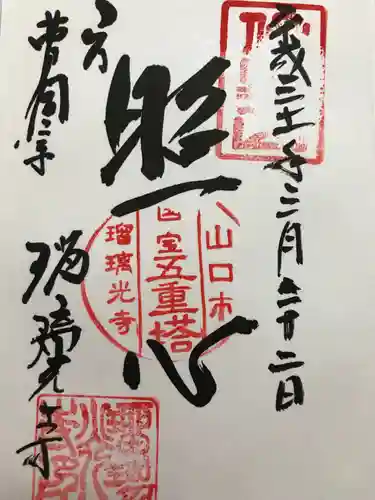 平成三十一年三月二十二日
照一心
山口市
国宝五重塔
瑠璃光寺
曹洞宗
瑠璃光寺